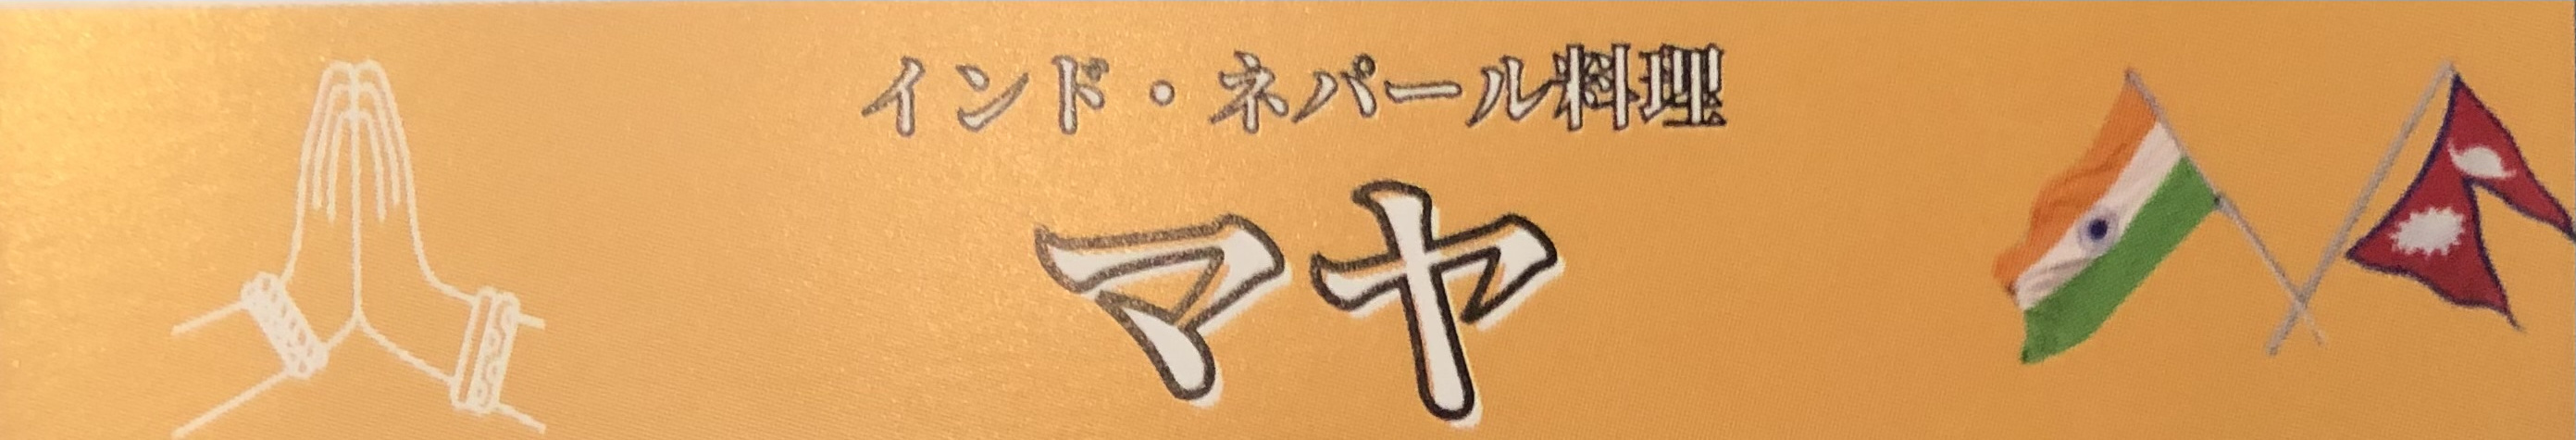 インド・ネパール料理
マヤ